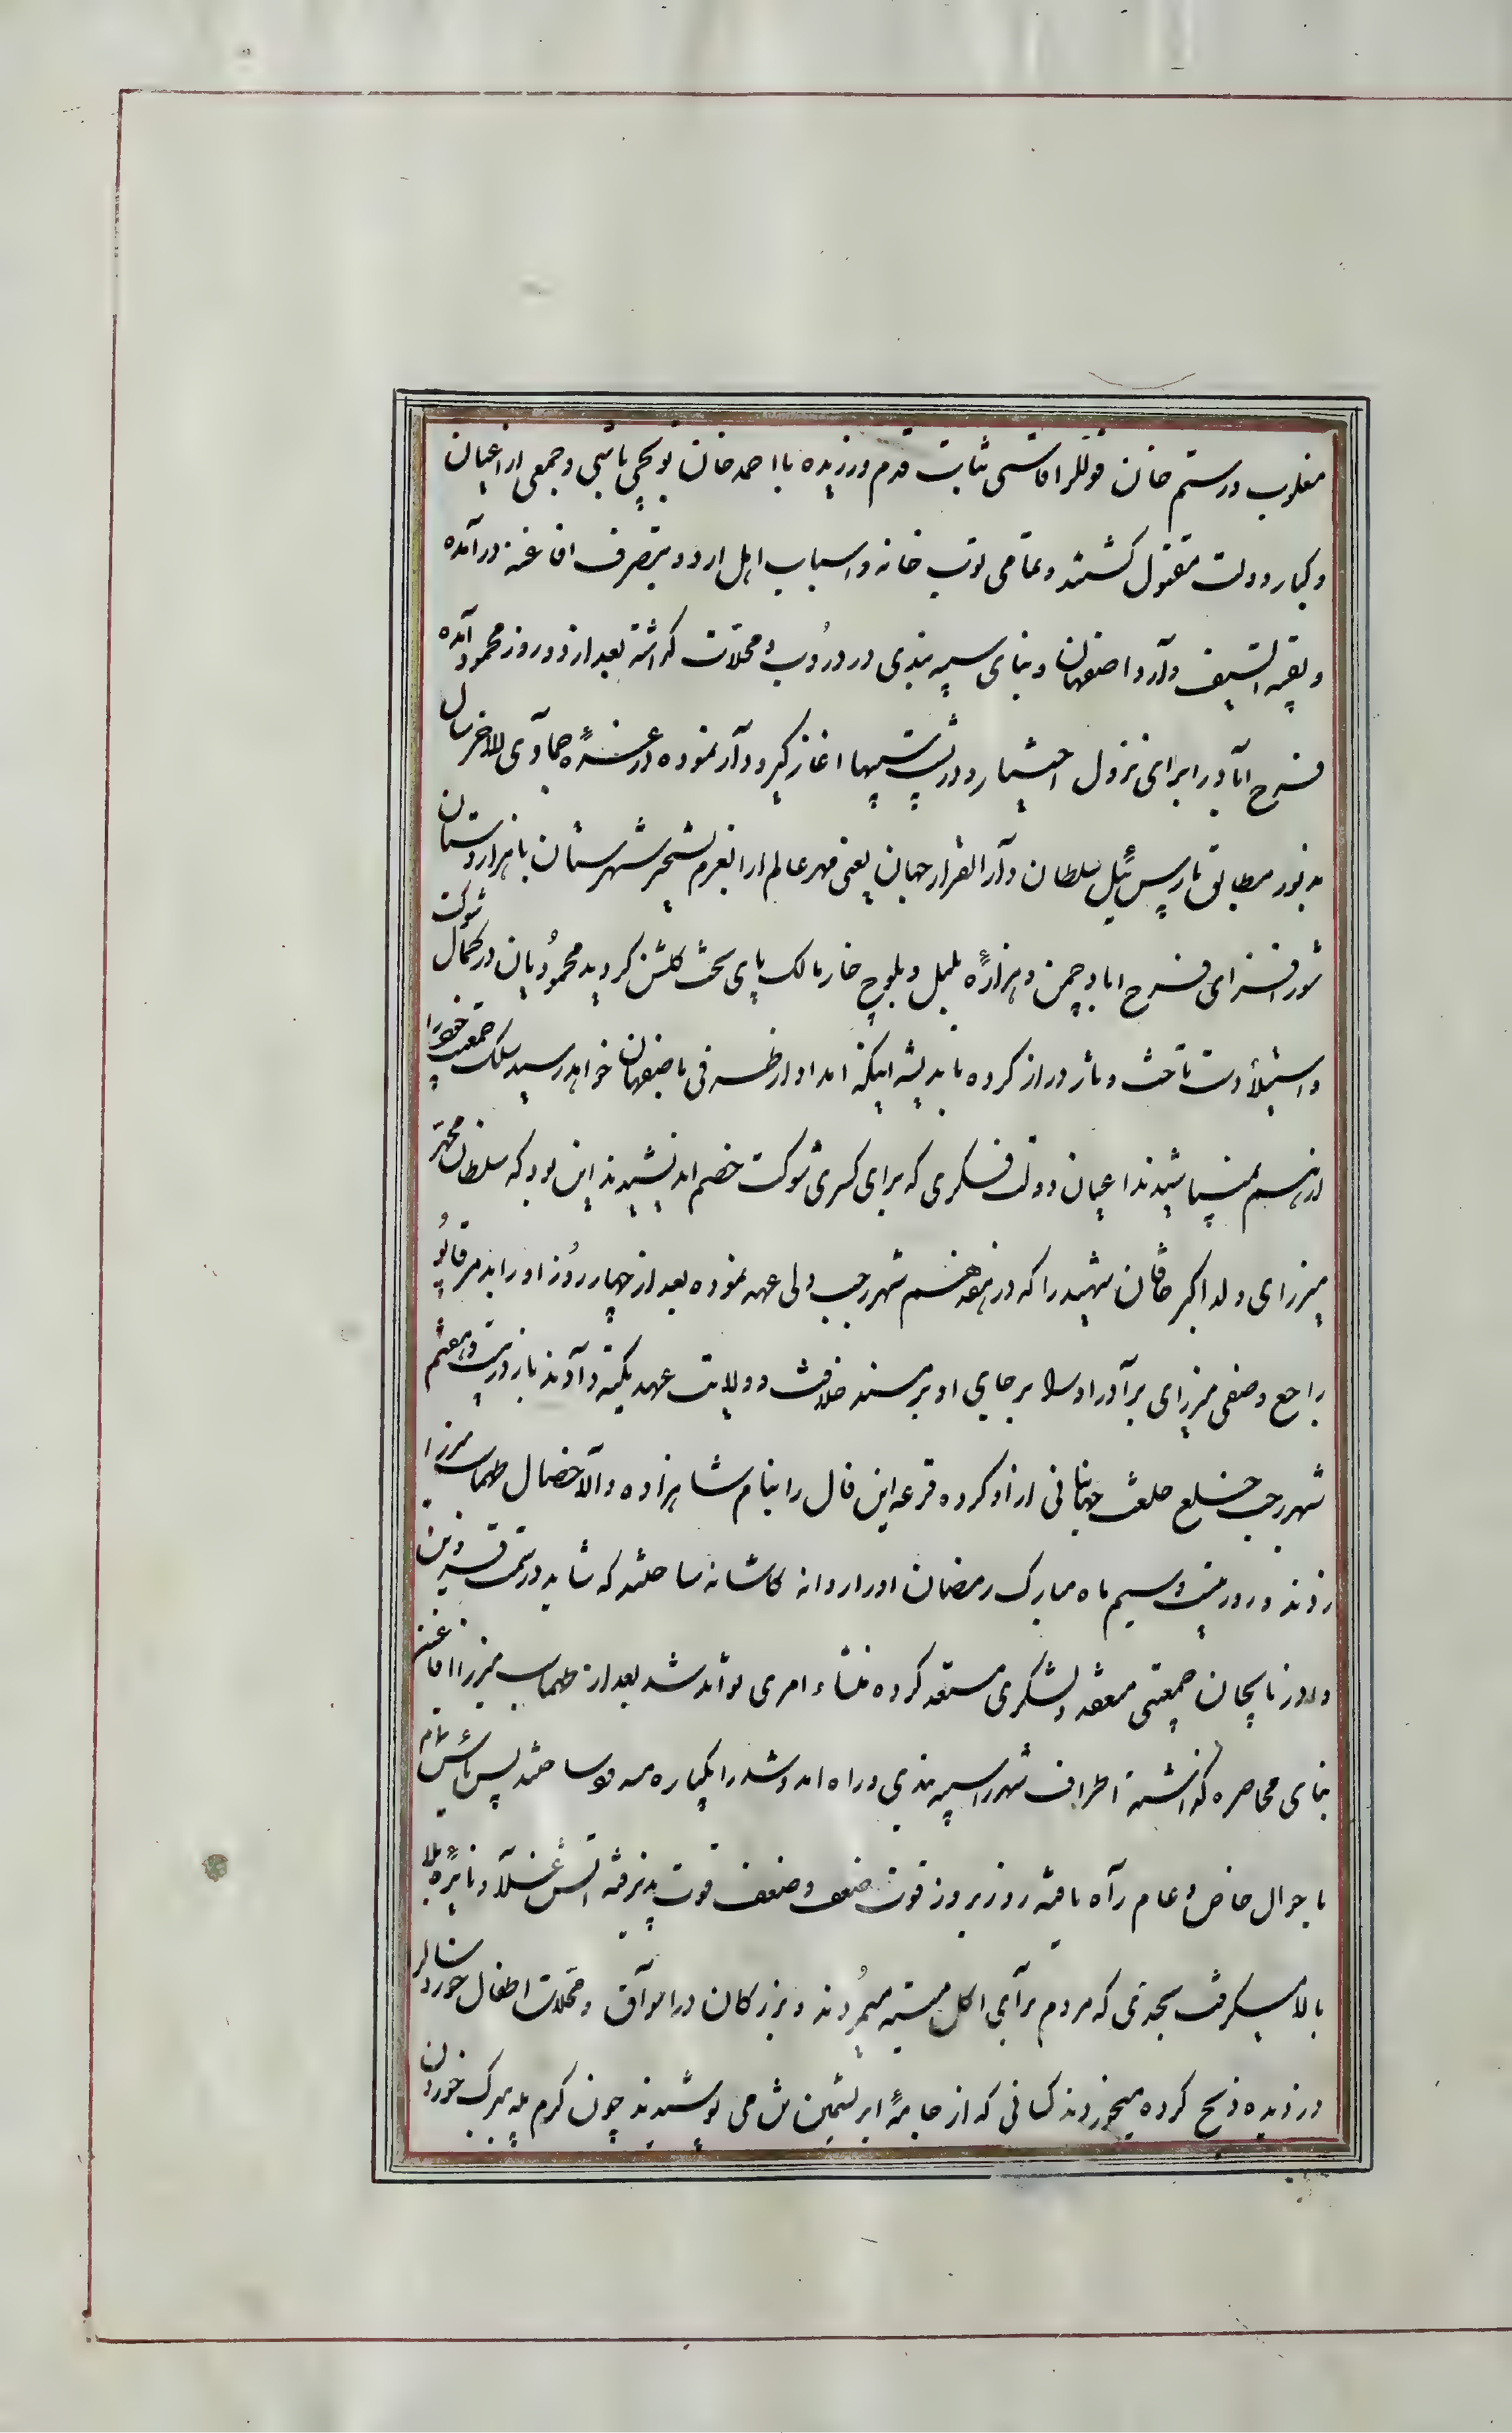 مغلوب و رستم خان قوللر اقاسی ثابت قدم ورزیده با احمد خان توپچی باشی و جمعی از اعیان
و کبار دولت مقتول کشتند و تمامی توپ خانه و اسباب اهل اردو بتصرف افاغنه درآمده
و بقیه السیف وارد اصفهان و بنای سیبه بندی در دروب و محلات کذاشته بعد از دو روز محمود آمده
فرح اباد را برای نزول اختیار و در پشت سیبها اغاز کیر و دار نموده در غره جمادی الاخر سال
مذبور مطابق بارس ئیل سلطان دار القرار جهان یعنی مهر عالم ارا بعزم تسخیر شهرستان با هزار دستان
شور افزای فرح اباد چمن و هزاره بلبل و بلوچ خار مالک پای تخت کلشن کردید محمودیان در کمال شوکت
و استیلا دست تاخت و تاز دراز کرده باندیشه اینکه امداد از طرفی باصفهان خواهد رسید سلک جمعیت خود را
از هم نمیپاشیدند اعیان دولت فکری که برای کسری شوکت خصم اندیشیدند این بود که سلطان محمد
میرزای ولد اکبر خاقان شهید را که در هفدهم شهر رجب ولی عهد نموده بعد از چهار روز او را بدمر قاپو
راجع و صفی میرزای برادر او را بر جای او بر مسند خلافت و ولایت عهد تکیه دادند باز در بیست و هفتم
شهر رجب خلع خلعت جهانبانی از او کرده قرعه این فال را بنام شاهزاده والا خصال طهماسب میرزا
زدند و در بیست و سیم ماه مبارک رمضان او را روانه کاشانه ساختند که شاید در سمت قزوین
و اذربایجان جمعیتی منعقد و لشکری مستعد کرده منشاء امری تواند شد بعد از طهماسب میرزا افاغنه
بنای محاصره کذاشته اطراف شهر را سیبه بندی و راه امد و شد را یکباره مسدود ساختند پس یاس تمام
باحوال خاص و عام راه یافته روز بروز قوت ضعف و ضعف قوت پذیرفته اتش غلا و نایره بلا
بالا میکرفت بحدی که مردم برای اکل میته میمردند و بزرکان در اسواق و محلات اطفال خورد سال را
دزدیده ذبح کرده میخوردند کسانی که از جامه ابریشمین ش می پوشیدند چون کرم پیله ببرک خوردن